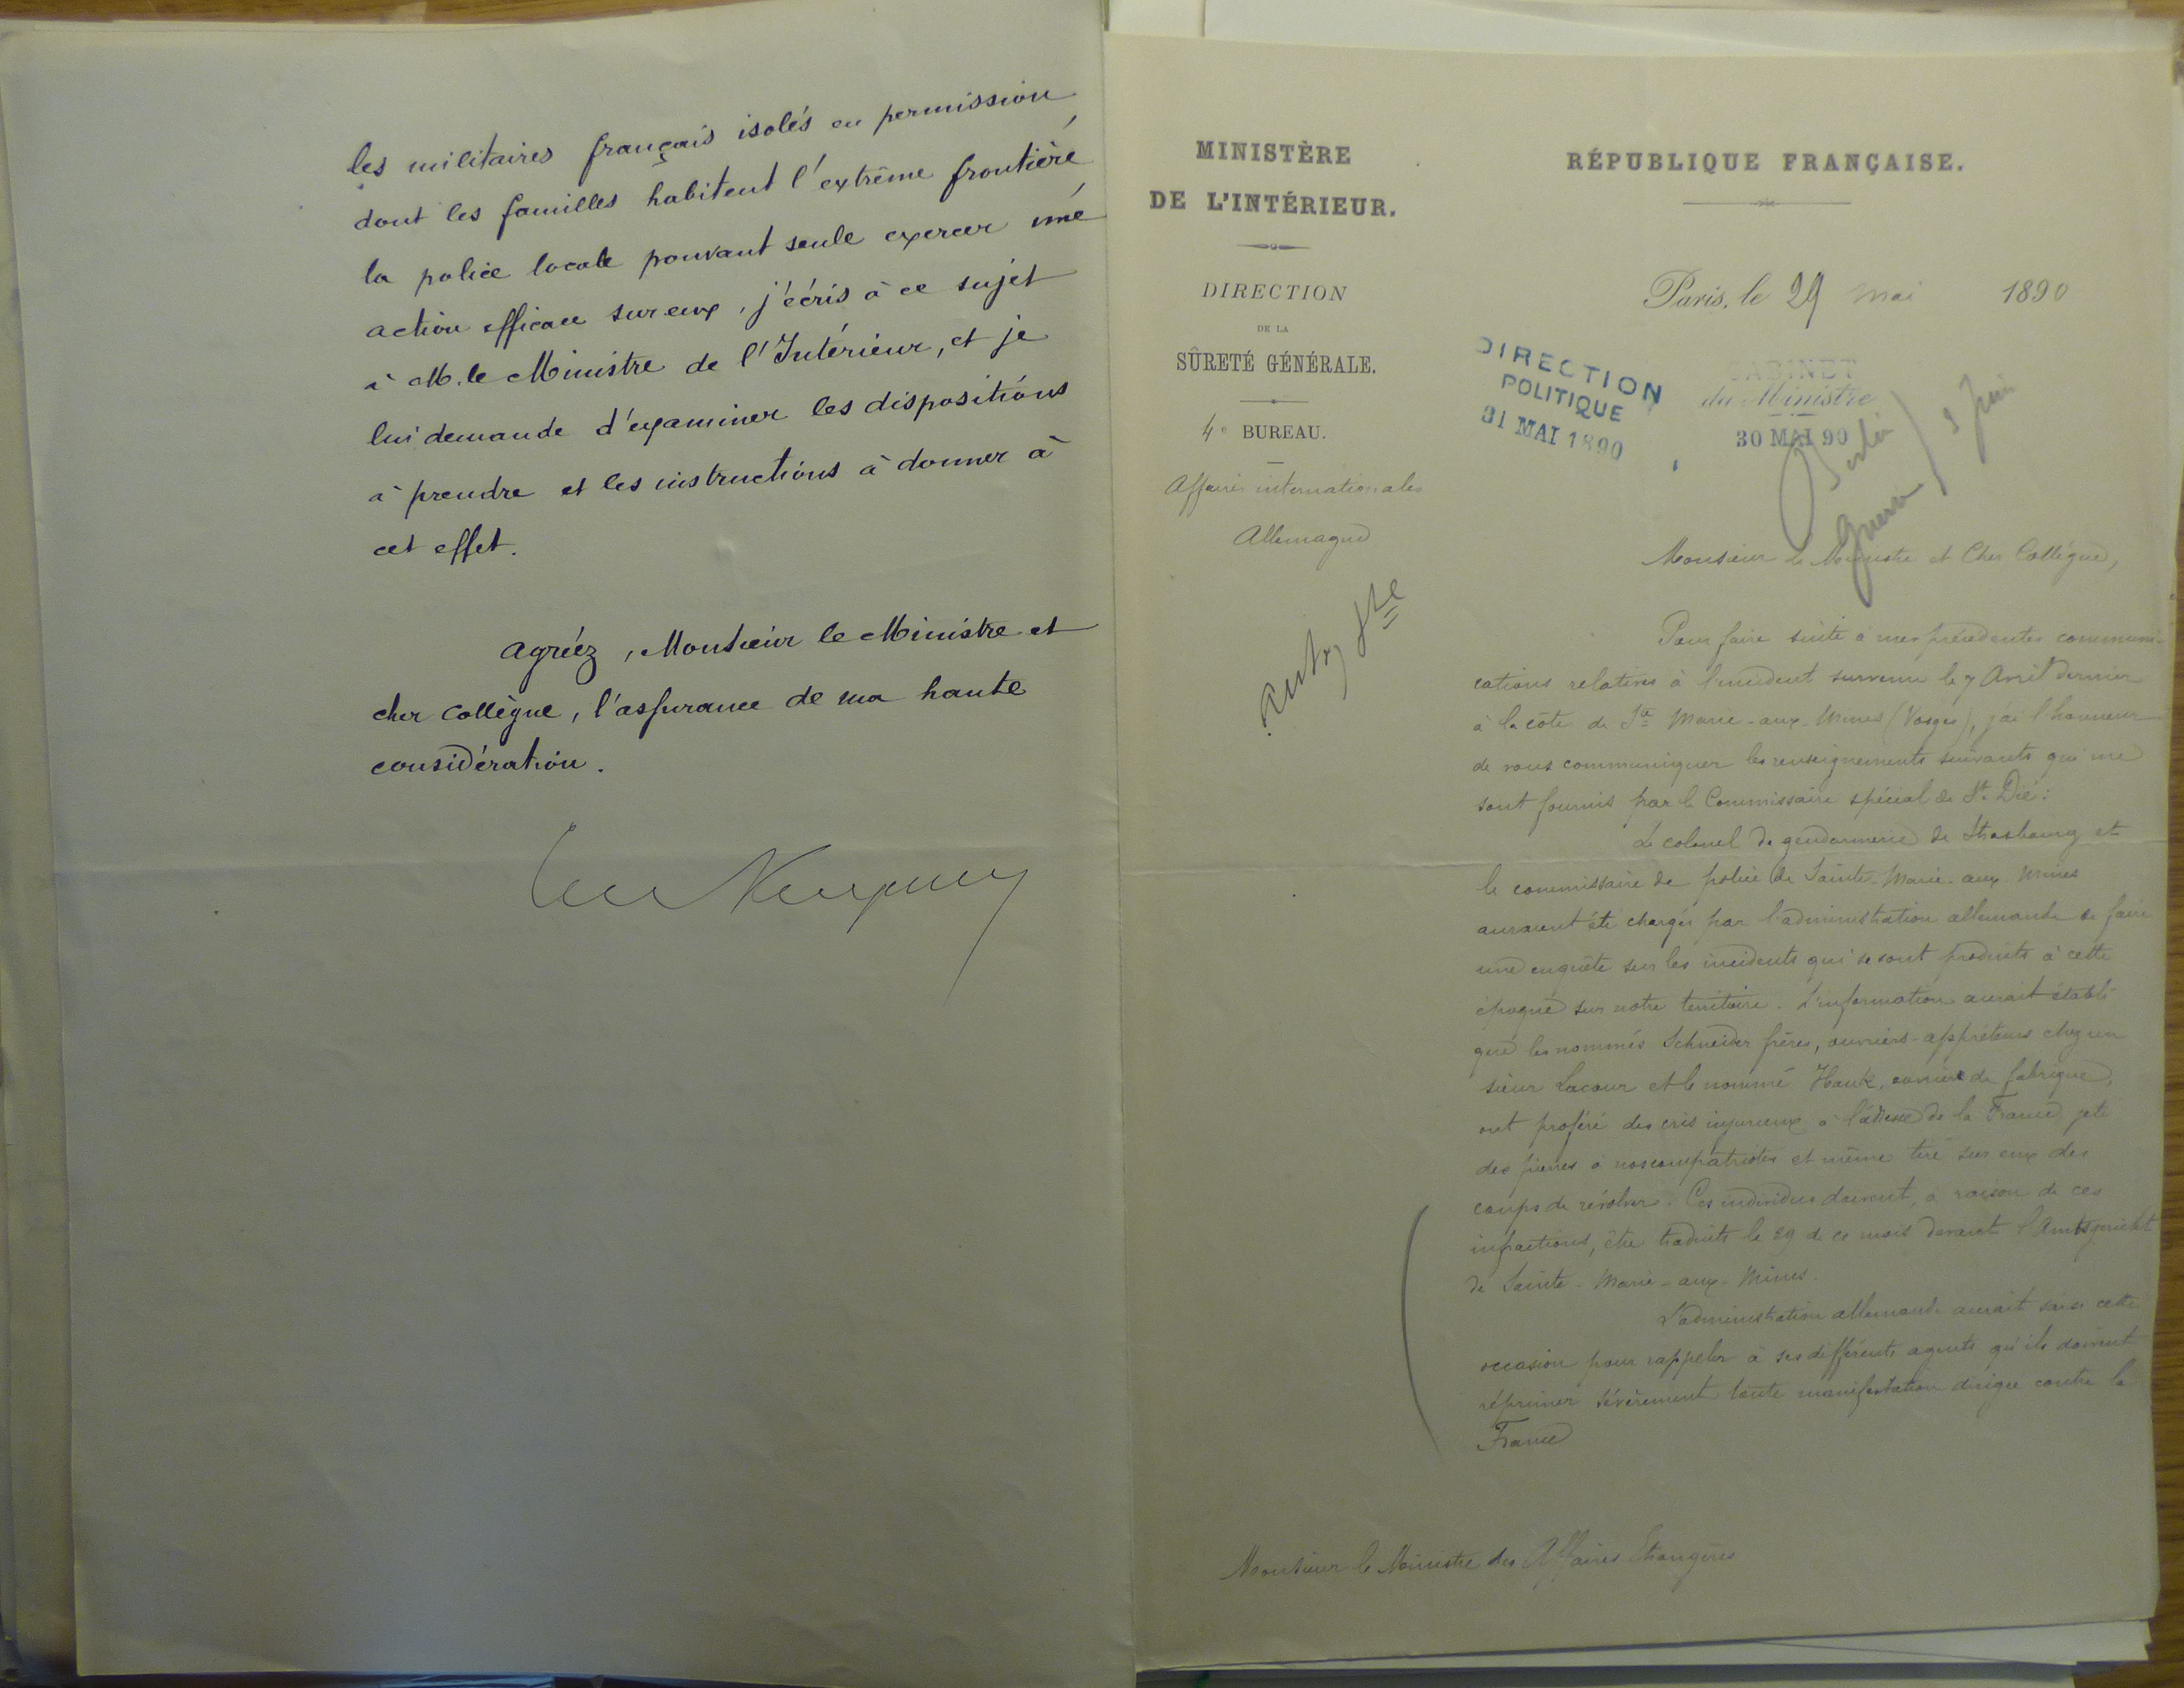 les militaires français isolés en permission,
dont les familles habitent l'extrême frontière,
la police locale pouvant seule exercer une
action efficace sur eux, j'écris à ce sujet
à M. le Ministre de l'Intérieur, et je
lui demande d'examiner les dispositions
à prendre et les instructions à donner à
cet effet.
Agréez, Monsieur le Ministre et
cher Collègue, l'assurance de ma haute
considération.
MINISTÈRE
DE L'INTÉRIEUR.
DIRECTION
DE LA
SÛRETÉ GÉNÉRALE.
4e BUREAU.
Affaires internationales
Allemagne
RÉPUBLIQUE FRANÇAISE.
Paris, le 29 mai 1890
DIRECTION
POLITIQUE
31 MAI 1890
CABINET
du Ministre
30 MAI 90
Berlin
Guerre
Juin
Monsieur le Ministre et Cher Collègue,
Pour faire suite à mes précédentes communi-
cations relatives à l'incident survenu le 7 Avril dernier
à la côte de Ste Marie-aux-Mines (Vosges), j'ai l'honneur
de vous communiquer les renseignements suivants qui me
sont fournis par le Commissaire spécial de St. Dié:
Le colonel de gendarmerie de Strasbourg et
le commissaire de police de Sainte-Marie-aux-Mines
auraient été chargés par l'administration allemande de faire
une enquête sur les incidents qui se sont produits à cette
époque sur notre territoire. L'information aurait établi
que les nommés Schneider frères, ouvriers-apprêteurs chez un
sieur Lacour et le nommé Hauk, ouvrier de fabrique,
ont proféré des cris injurieux à l'adresse de la France, jeté
des pierres à nos compatriotes et même tiré sur eux des
coups de révolver. Ces individus doivent, à raison de ces
infractions, être traduits le 29 de ce mois devant l'Amtsgericht
de Sainte-Marie-aux-Mines.
L'administration allemande aurait saisi cette
occasion pour rappeler à ses différents agents qu'ils doivent
réprimer sévèrement toute manifestation dirigée contre la
France
Monsieur le Ministre des Affaires Etrangères